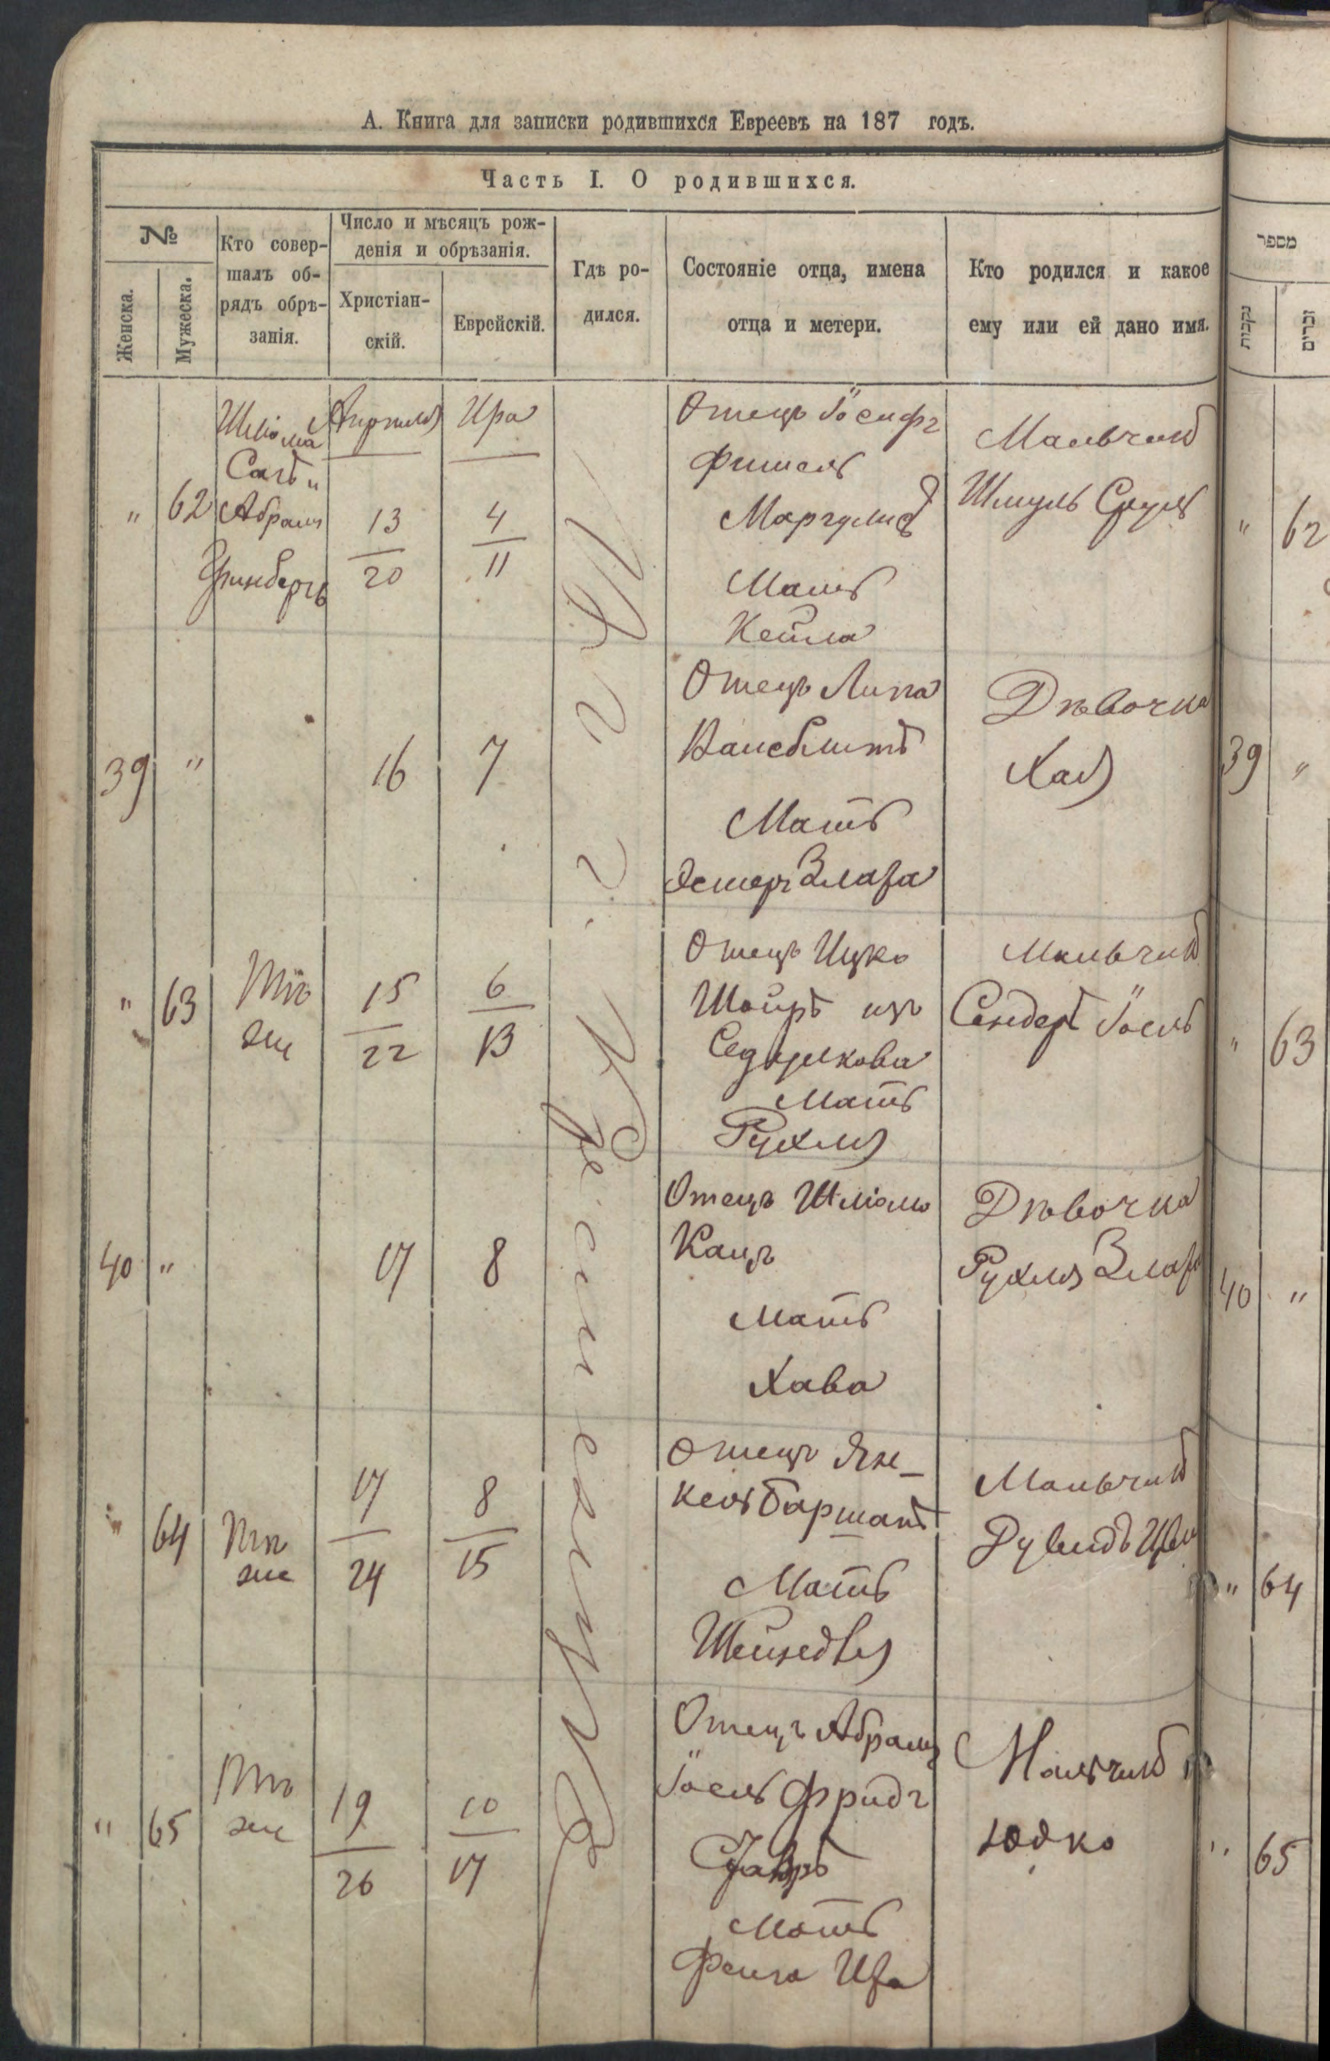 А. Книга для записки родившихся Евреевъ на 187 годъ.
Часть I. О родившихся.
№
Женска.
Мужеска.
Кто совер-
шалъ об-
рядъ обрѣ-
занія.
Число и мѣсяцъ рож-
денія и обрѣзанія.
Христіан-
скій.
Еврейскій.
Гдѣ ро-
дился.
Состояніе отца, имена
отца и метери.
Кто родился и какое
ему или ей дано имя.
מספר
נקבות
זכרים
" 62
Шліома
Абрамъ
Гринбергъ
Апрѣля
13
20
Ира
4
11
Отецъ Іосифъ
Фишель
Маргулис
Мать
Кейла
Мальчикъ
Шмуль Сруль
" 62
39 "
16
7
Отецъ Липа
Мать
Эстеръ Злата
Дѣвочка
Хая
39 "
" 63
Тотъ
же
15
22
6
13
Отецъ Ицко
Шпиръ изъ
Судилкова
Мать
Рухля
Мальчикъ
Сендеръ Іосель
" 63
40 "
17
8
Отецъ Шліома
Кацъ
Мать
Хава
Дѣвочка
Рухля Злата
40 "
" 64
Тотъ
же
17
24
8
15
Отецъ Ян-
кель Баршакъ
Мать
Шейндля
Мальчикъ
" 64
" 65
Тотъ
же
19
26
10
17
Отецъ Абрамъ
Іосель Фридъ
Мать
Фейга Ита
Мальчикъ
Юдко
" 65